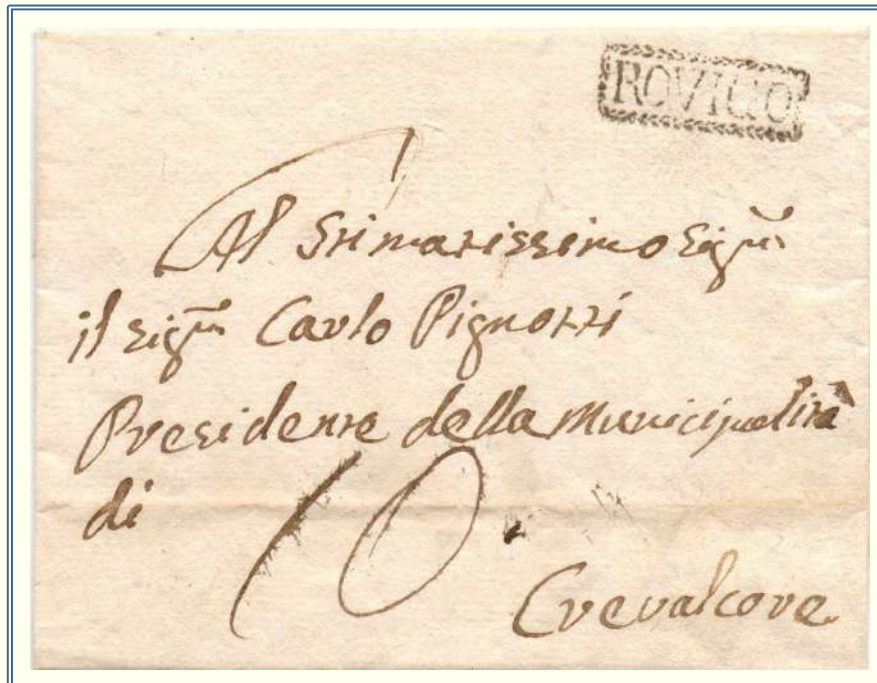 ROVIGO
Al Stimatissimo Sig.r
il Sig.r Carlo Pignozzi
Presidente della Municipalità
di
10
Crevalcore